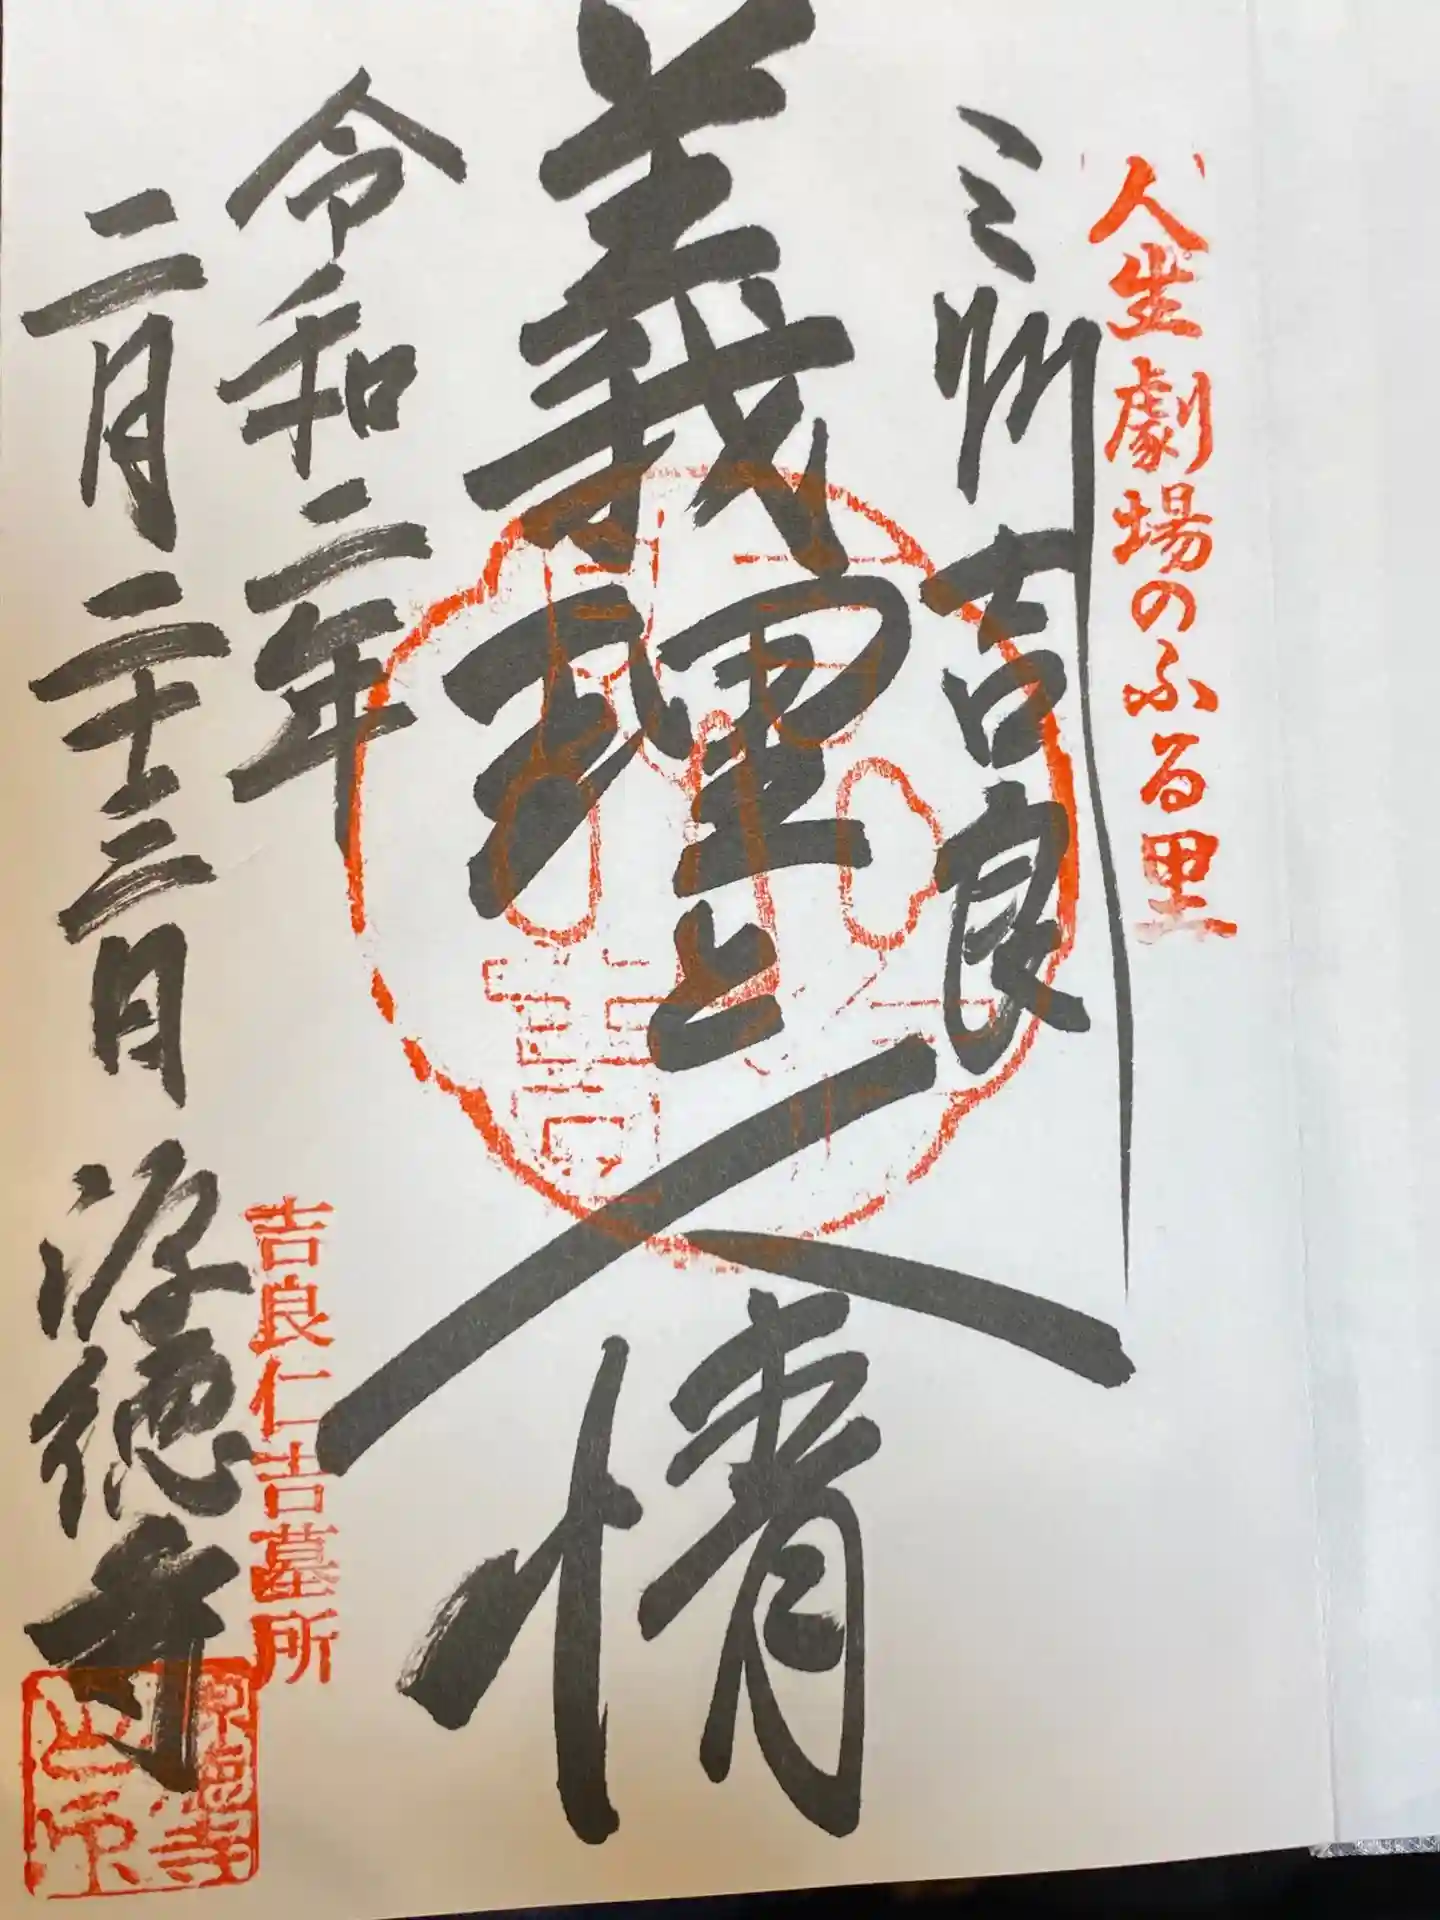 人生劇場のふる里
三州吉良
義理と人情
令和二年
二月二十三日 源徳寺
吉良仁吉墓所